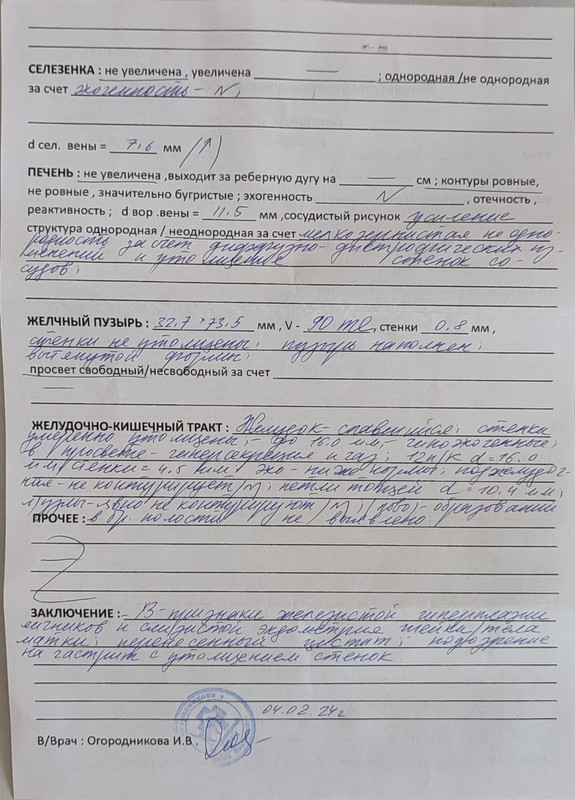 СЕЛЕЗЕНКА : не увеличена , увеличена — ; однородная /не однородная
за счет эхогенность - N ;
d сел. вены = 7,6 мм /↑/
ПЕЧЕНЬ : не увеличена ,выходит за реберную дугу на — см ; контуры ровные,
не ровные , значительно бугристые ; эхогенность N , отечность ,
реактивность ; d вор .вены = 11.5 мм ,сосудистый рисунок усиление
структура однородная / неоднородная за счет мелкозернистая не одно-
родность за счет диффузно-дистрофических из-
менений и утолщение стенок со-
судов;
ЖЕЛЧНЫЙ ПУЗЫРЬ : 32,7 * 73,5 мм , V - 90 ml , стенки 0.8 мм ,
стенки не утолщены; пузырь наполнен;
вытянутой формы;
просвет свободный/несвободный за счет
—
ЖЕЛУДОЧНО-КИШЕЧНЫЙ ТРАКТ : Желудок - спавшийся; стенки
умеренно утолщены; - до 15.0 мм, - гипоэхогенные;
в просвете - гиперсекреция и газ; 12п/к d = 16.0
мм стенки = 4.5 мм; эхо - ниже нормы; поджелудоч-
ная - не контурирует /N/; петли тощей d = 10.4 мм;
л/узлы - явно не контурируют /N/; ново)- образований
ПРОЧЕЕ : в бр. полости не выявлено.
ЗАКЛЮЧЕНИЕ : УЗ-признаки железистой гиперплазии
яичников и слизистой эндометрия шейки/тела
матки; перенесенный цистит; подозрение
на гастрит с утолщением стенок
04.02.24г
В/Врач : Огородникова И.В .